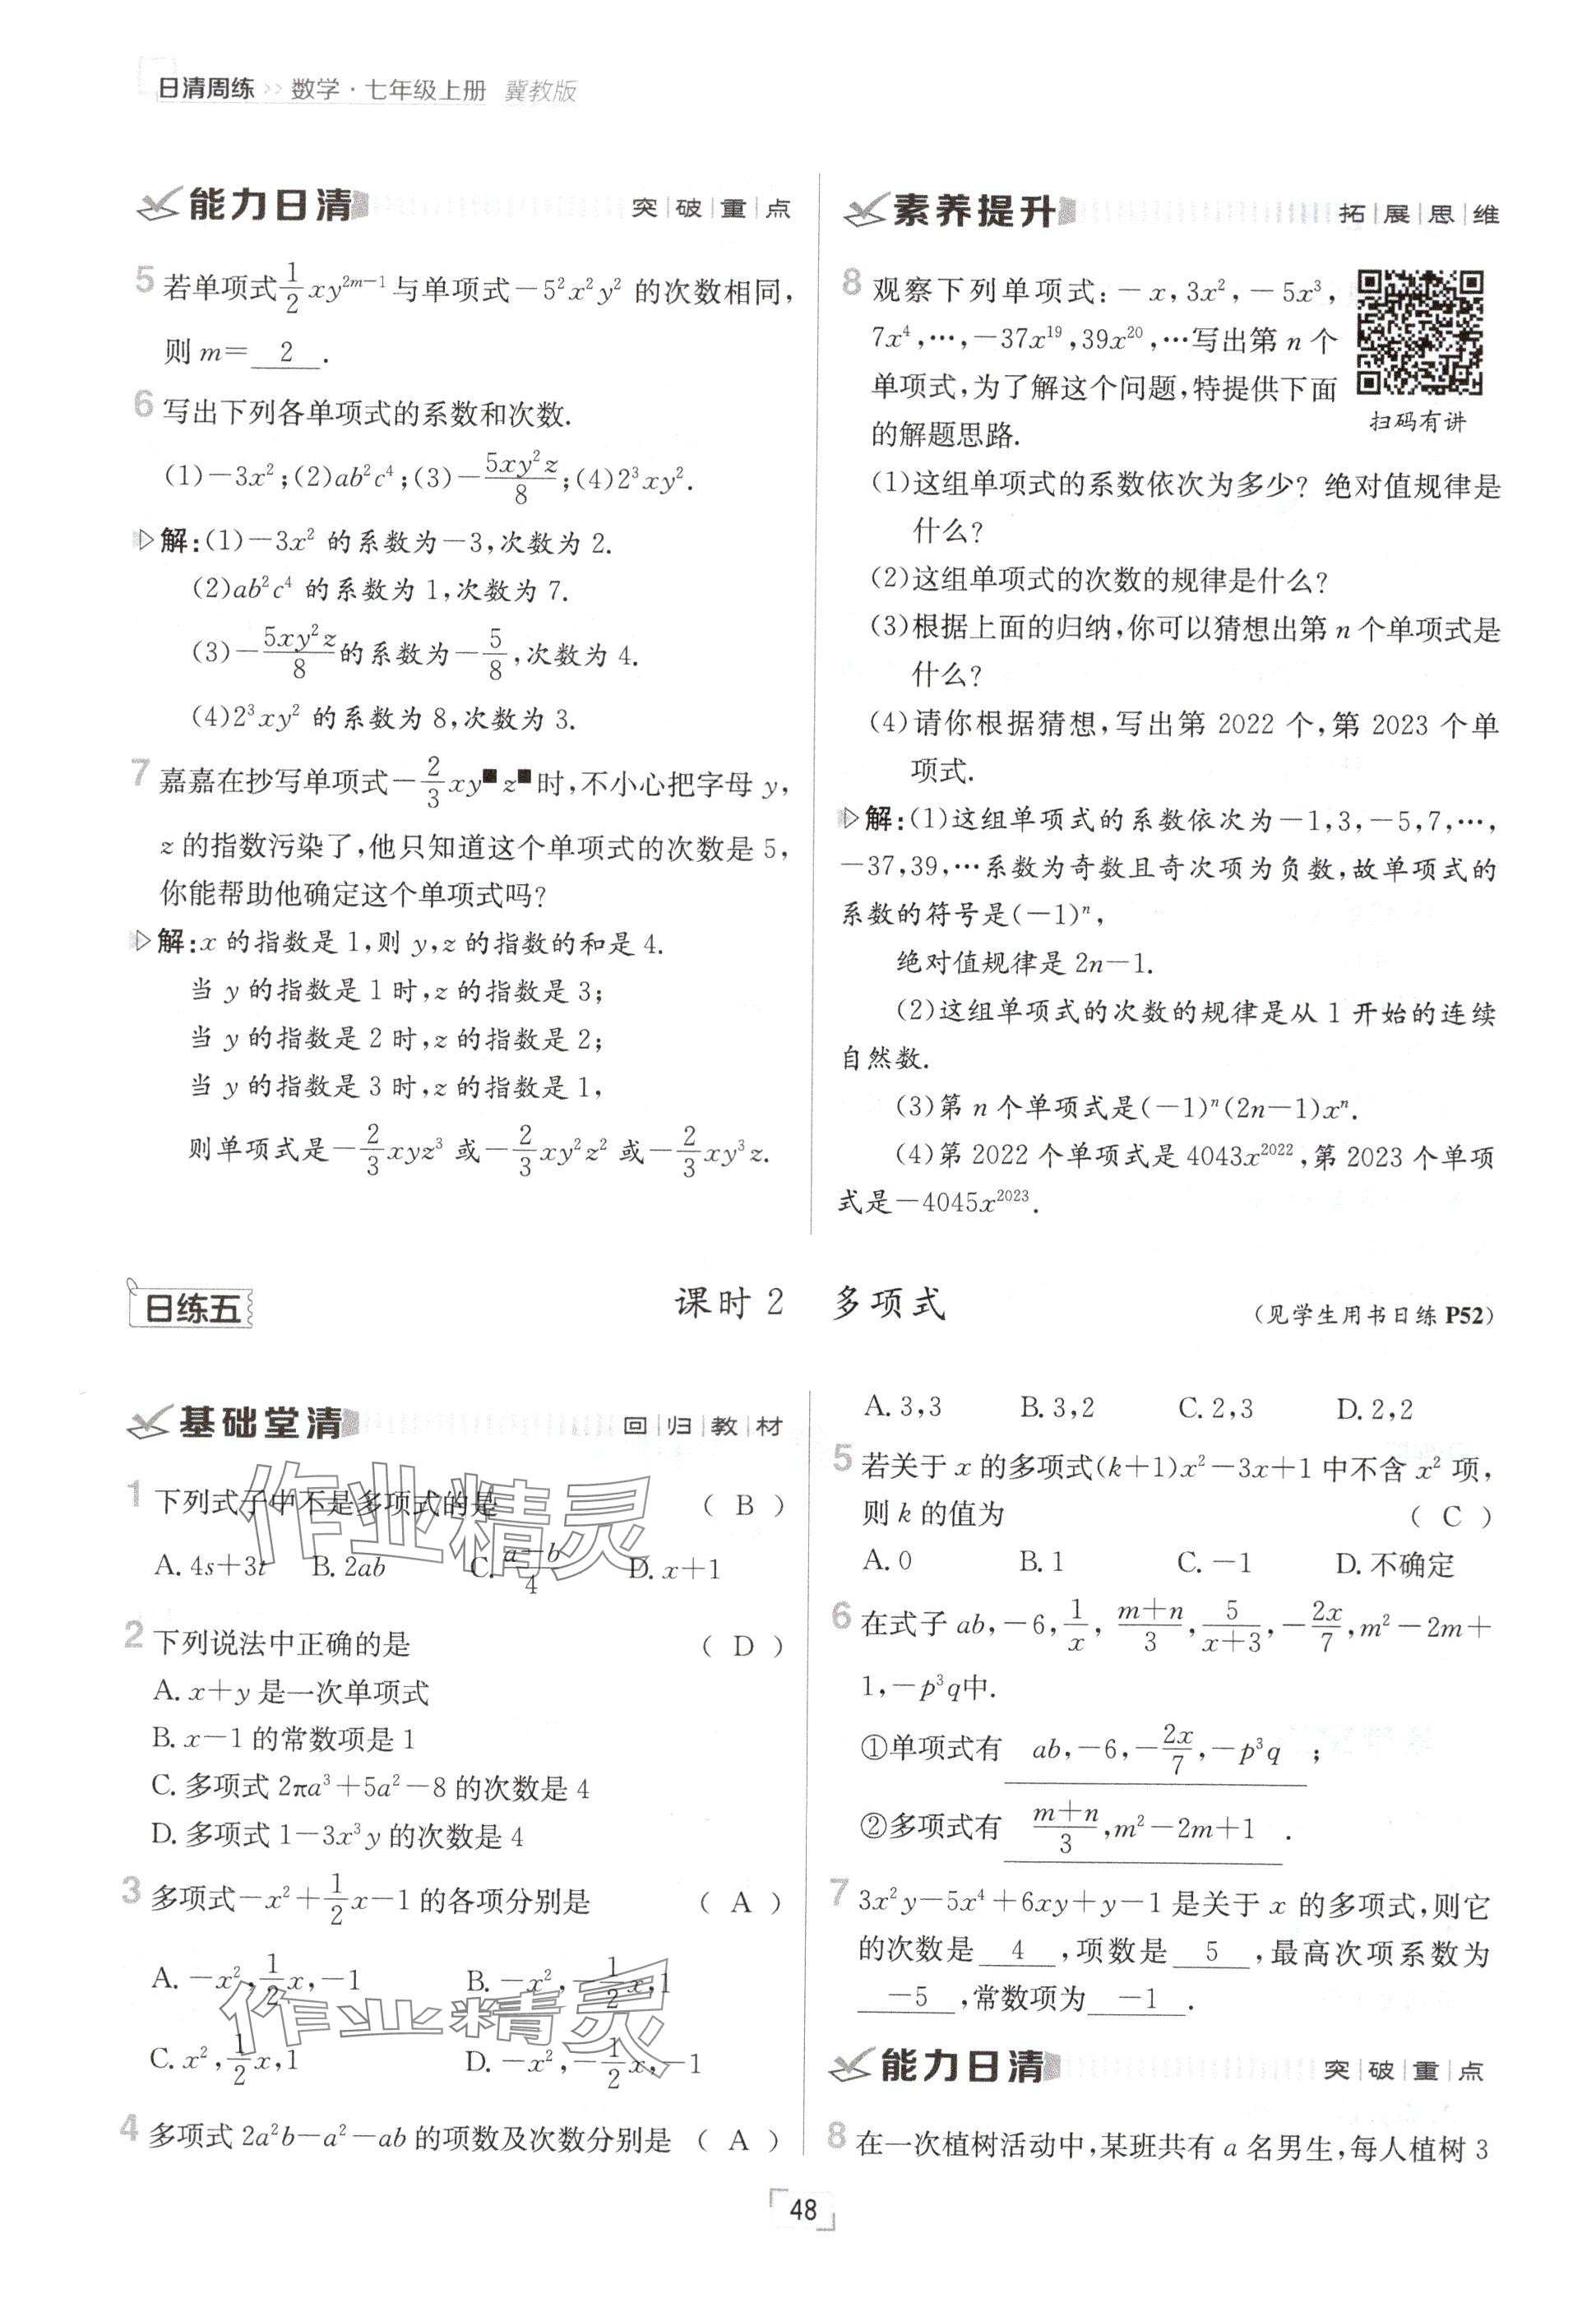 日清周练 >> 数学·七年级上册 冀教版
能力日清 突|破|重|点
5 若单项式\frac{1}{2}xy^{2m-1}与单项式-5^2x^2y^2 的次数相同,
则 m= 2 .
6 写出下列各单项式的系数和次数.
(1)-3x^2;(2)ab^2c^4;(3)-\frac{5xy^2z}{8};(4)2^3xy^2.
解:(1)-3x^2 的系数为-3,次数为 2.
(2)ab^2c^4 的系数为 1,次数为 7.
(3)-\frac{5xy^2z}{8}的系数为-\frac{5}{8},次数为 4.
(4)2^3xy^2 的系数为 8,次数为 3.
7 嘉嘉在抄写单项式-\frac{2}{3}xy^■z^■时,不小心把字母 y,
z 的指数污染了,他只知道这个单项式的次数是 5,
你能帮助他确定这个单项式吗?
解:x 的指数是 1,则 y,z 的指数的和是 4.
当 y 的指数是 1 时,z 的指数是 3;
当 y 的指数是 2 时,z 的指数是 2;
当 y 的指数是 3 时,z 的指数是 1,
则单项式是-\frac{2}{3}xyz^3 或-\frac{2}{3}xy^2z^2 或-\frac{2}{3}xy^3z.
素养提升 拓|展|思|维
8 观察下列单项式:-x,3x^2,-5x^3,
7x^4,…,-37x^{19},39x^{20},…写出第 n 个
单项式,为了解这个问题,特提供下面
的解题思路.
扫码有讲
(1)这组单项式的系数依次为多少? 绝对值规律是
什么?
(2)这组单项式的次数的规律是什么?
(3)根据上面的归纳,你可以猜想出第 n 个单项式是
什么?
(4)请你根据猜想,写出第 2022 个,第 2023 个单
项式.
解:(1)这组单项式的系数依次为-1,3,-5,7,…,
-37,39,…系数为奇数且奇次项为负数,故单项式的
系数的符号是(-1)^n,
绝对值规律是 2n-1.
(2)这组单项式的次数的规律是从 1 开始的连续
自然数.
(3)第 n 个单项式是(-1)^n(2n-1)x^n.
(4)第 2022 个单项式是 4043x^{2022},第 2023 个单项
式是-4045x^{2023}.
日练五 课时 2 多项式 (见学生用书日练 P52)
基础堂清 回|归|教|材
1 下列式子中不是多项式的是 ( B )
A. 4s+3t B. 2ab C. \frac{a-b}{4} D. x+1
2 下列说法中正确的是 ( D )
A. x+y 是一次单项式
B. x-1 的常数项是 1
C. 多项式 2πa^3+5a^2-8 的次数是 4
D. 多项式 1-3x^3y 的次数是 4
3 多项式-x^2+\frac{1}{2}x-1 的各项分别是 ( A )
A. -x^2,\frac{1}{2}x,-1 B. -x^2,-\frac{1}{2}x,1
C. x^2,\frac{1}{2}x,1 D. -x^2,-\frac{1}{2}x,-1
4 多项式 2a^2b-a^2-ab 的项数及次数分别是 ( A )
A. 3,3 B. 3,2 C. 2,3 D. 2,2
5 若关于 x 的多项式(k+1)x^2-3x+1 中不含 x^2 项,
则 k 的值为 ( C )
A. 0 B. 1 C. -1 D. 不确定
6 在式子 ab,-6,\frac{1}{x},\frac{m+n}{3},\frac{5}{x+3},-\frac{2x}{7},m^2-2m+
1,-p^3q中.
①单项式有 ab,-6,-\frac{2x}{7},-p^3q ;
②多项式有 \frac{m+n}{3},m^2-2m+1 .
7 3x^2y-5x^4+6xy+y-1 是关于 x 的多项式,则它
的次数是 4 ,项数是 5 ,最高次项系数为
-5 ,常数项为 -1 .
能力日清 突|破|重|点
8 在一次植树活动中,某班共有 a 名男生,每人植树 3
48
作业精灵
作业精灵